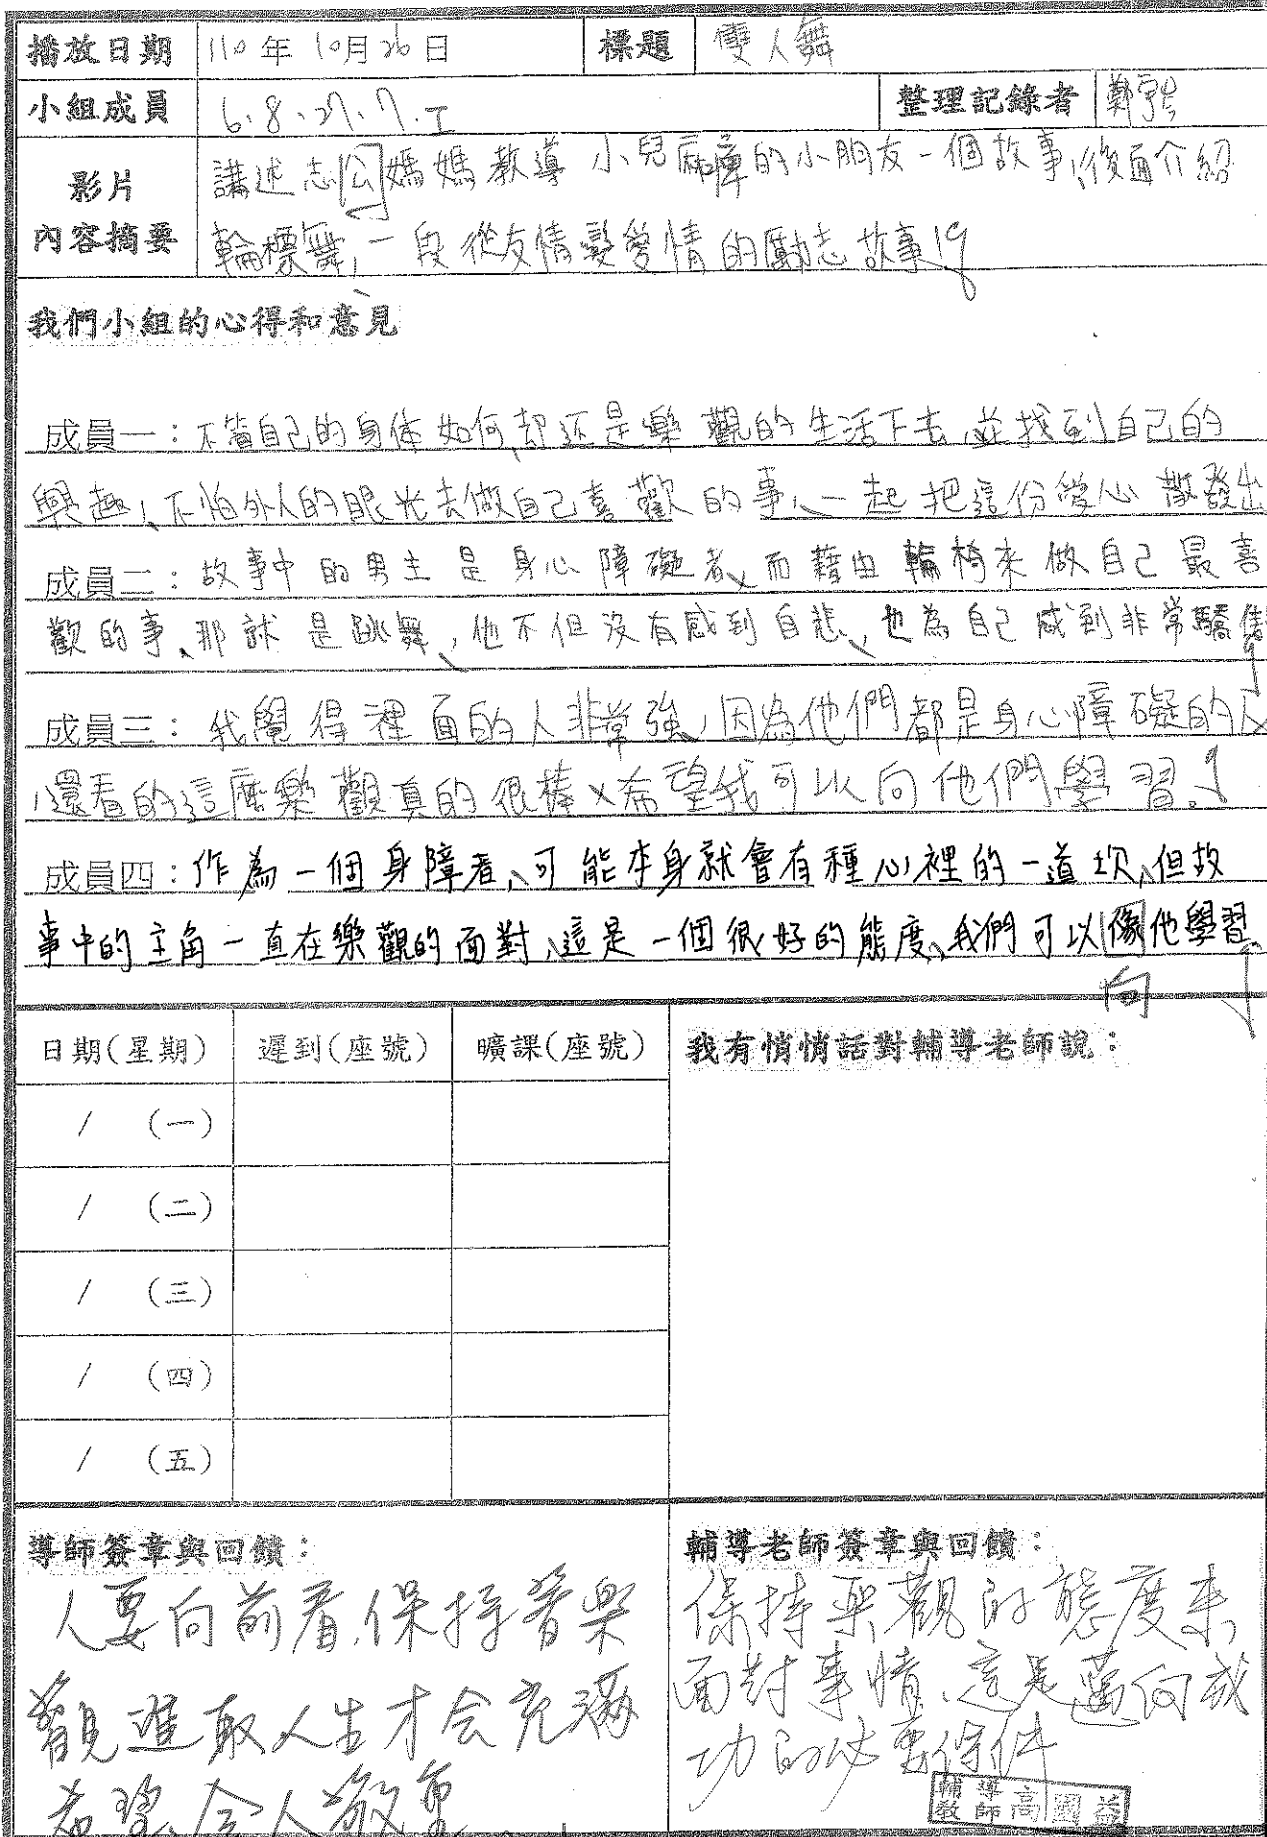 播放日期 110年10月26日 標題 雙人舞
小組成員 6.8.27.7. 整理記錄者 鄭
影片
內容摘要
講述志公媽媽教導小兒麻障的小朋友一個故事,後面介紹
輪標舞,一段從友情變愛情的勵志故事!
我們小組的心得和意見
成員一:不管自己的身体如何,却还是樂觀的生活下去,並找到自己的
興趣,不怕外人的眼光去做自己喜歡的事,一起把這份愛心散發出
成員二:故事中的男生是身心障礙者,而藉由輪椅來做自己最喜
歡的事、那就是跳舞,他不但沒有感到自悲、也為自己感到非常驕傲
成員三:我覺得裡面的人非常強,因為他們都是身心障礙的人
,還看的這麼樂觀真的很棒,希望我可以向他們學習.
成員四:作為一個身障者,可能本身就會有種心裡的一道坎,但故
事中的主角一直在樂觀的面對,這是一個很好的態度,我們可以像他學習
向
日期(星期) 遲到(座號) 曠課(座號) 我有悄悄話對輔導老師說:
/ (一)
/ (二)
/ (三)
/ (四)
/ (五)
導師簽章與回饋:
人要向前看,保持著樂
觀進取人生才会充滿
希望、令人敬重
輔導老師簽章與回饋:
保持樂觀的態度來
面對事情,這是邁向成
功的必要條件
輔導
教師 高國益